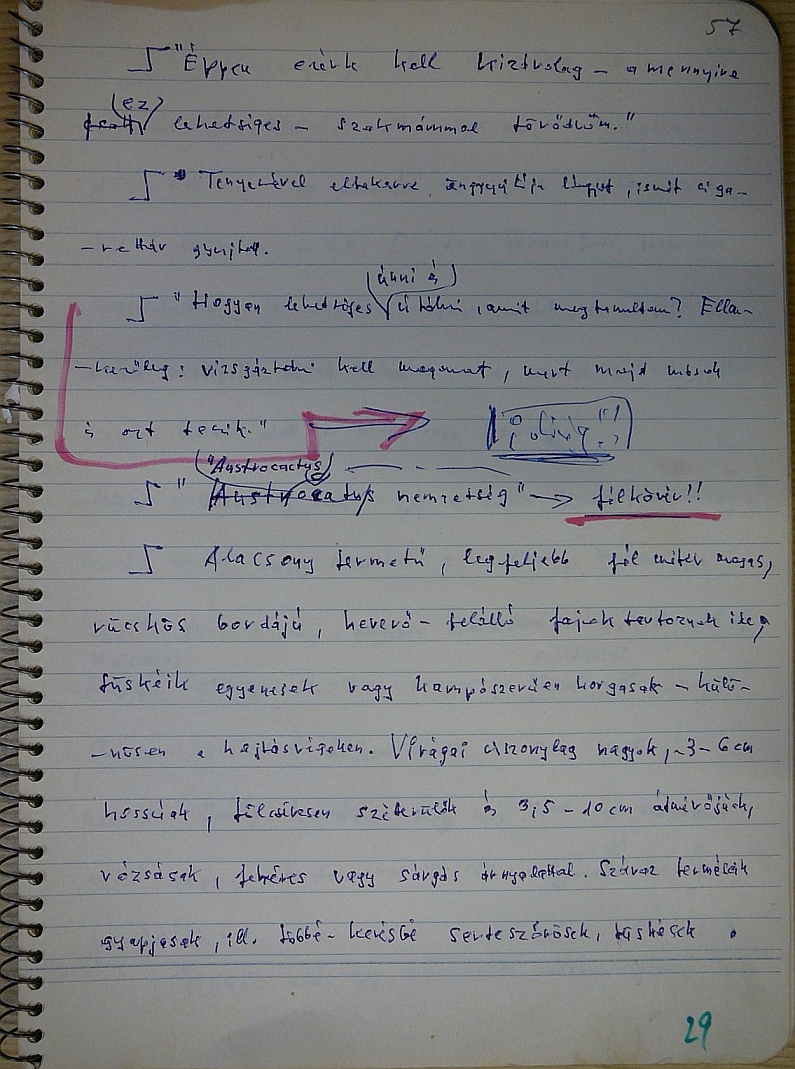 57
"Éppen ezért kell kizárólag – amennyire
(ez)
lehetséges – szakmámmal törődnöm."
Tenyerével eltakarva öngyújtója lángját, ismét ciga-
-rettár gyujtot.
(írni és)
"Hogyan lehetséges kitölni, amit megtanultam? Ellen-
-kezőleg: vizsgáztatni kell magamat, mert majd mások
is azt teszik."
"Austrocactus
" Austrocactus nemzetség" → félkövér!!
Alacsony termetű, legfeljebb fél méter magas,
rücskös bordájú, heverő – felálló fajok tartoznak ide,
tüskéik egyenesek vagy kampószerűen horgasak – külö-
-nösen a hajtásvégeken. Virágai viszonylag nagyok, ~3–6 cm
hosszúak, tölcséresen szétterülők és 3,5 – 10 cm átmérőjűek,
rózsásak, fehéres vagy sárgás árnyalattal. Száraz termésük
gyapjasak, ill. többé-kevésbé serteszőrösek, tüskések.
29